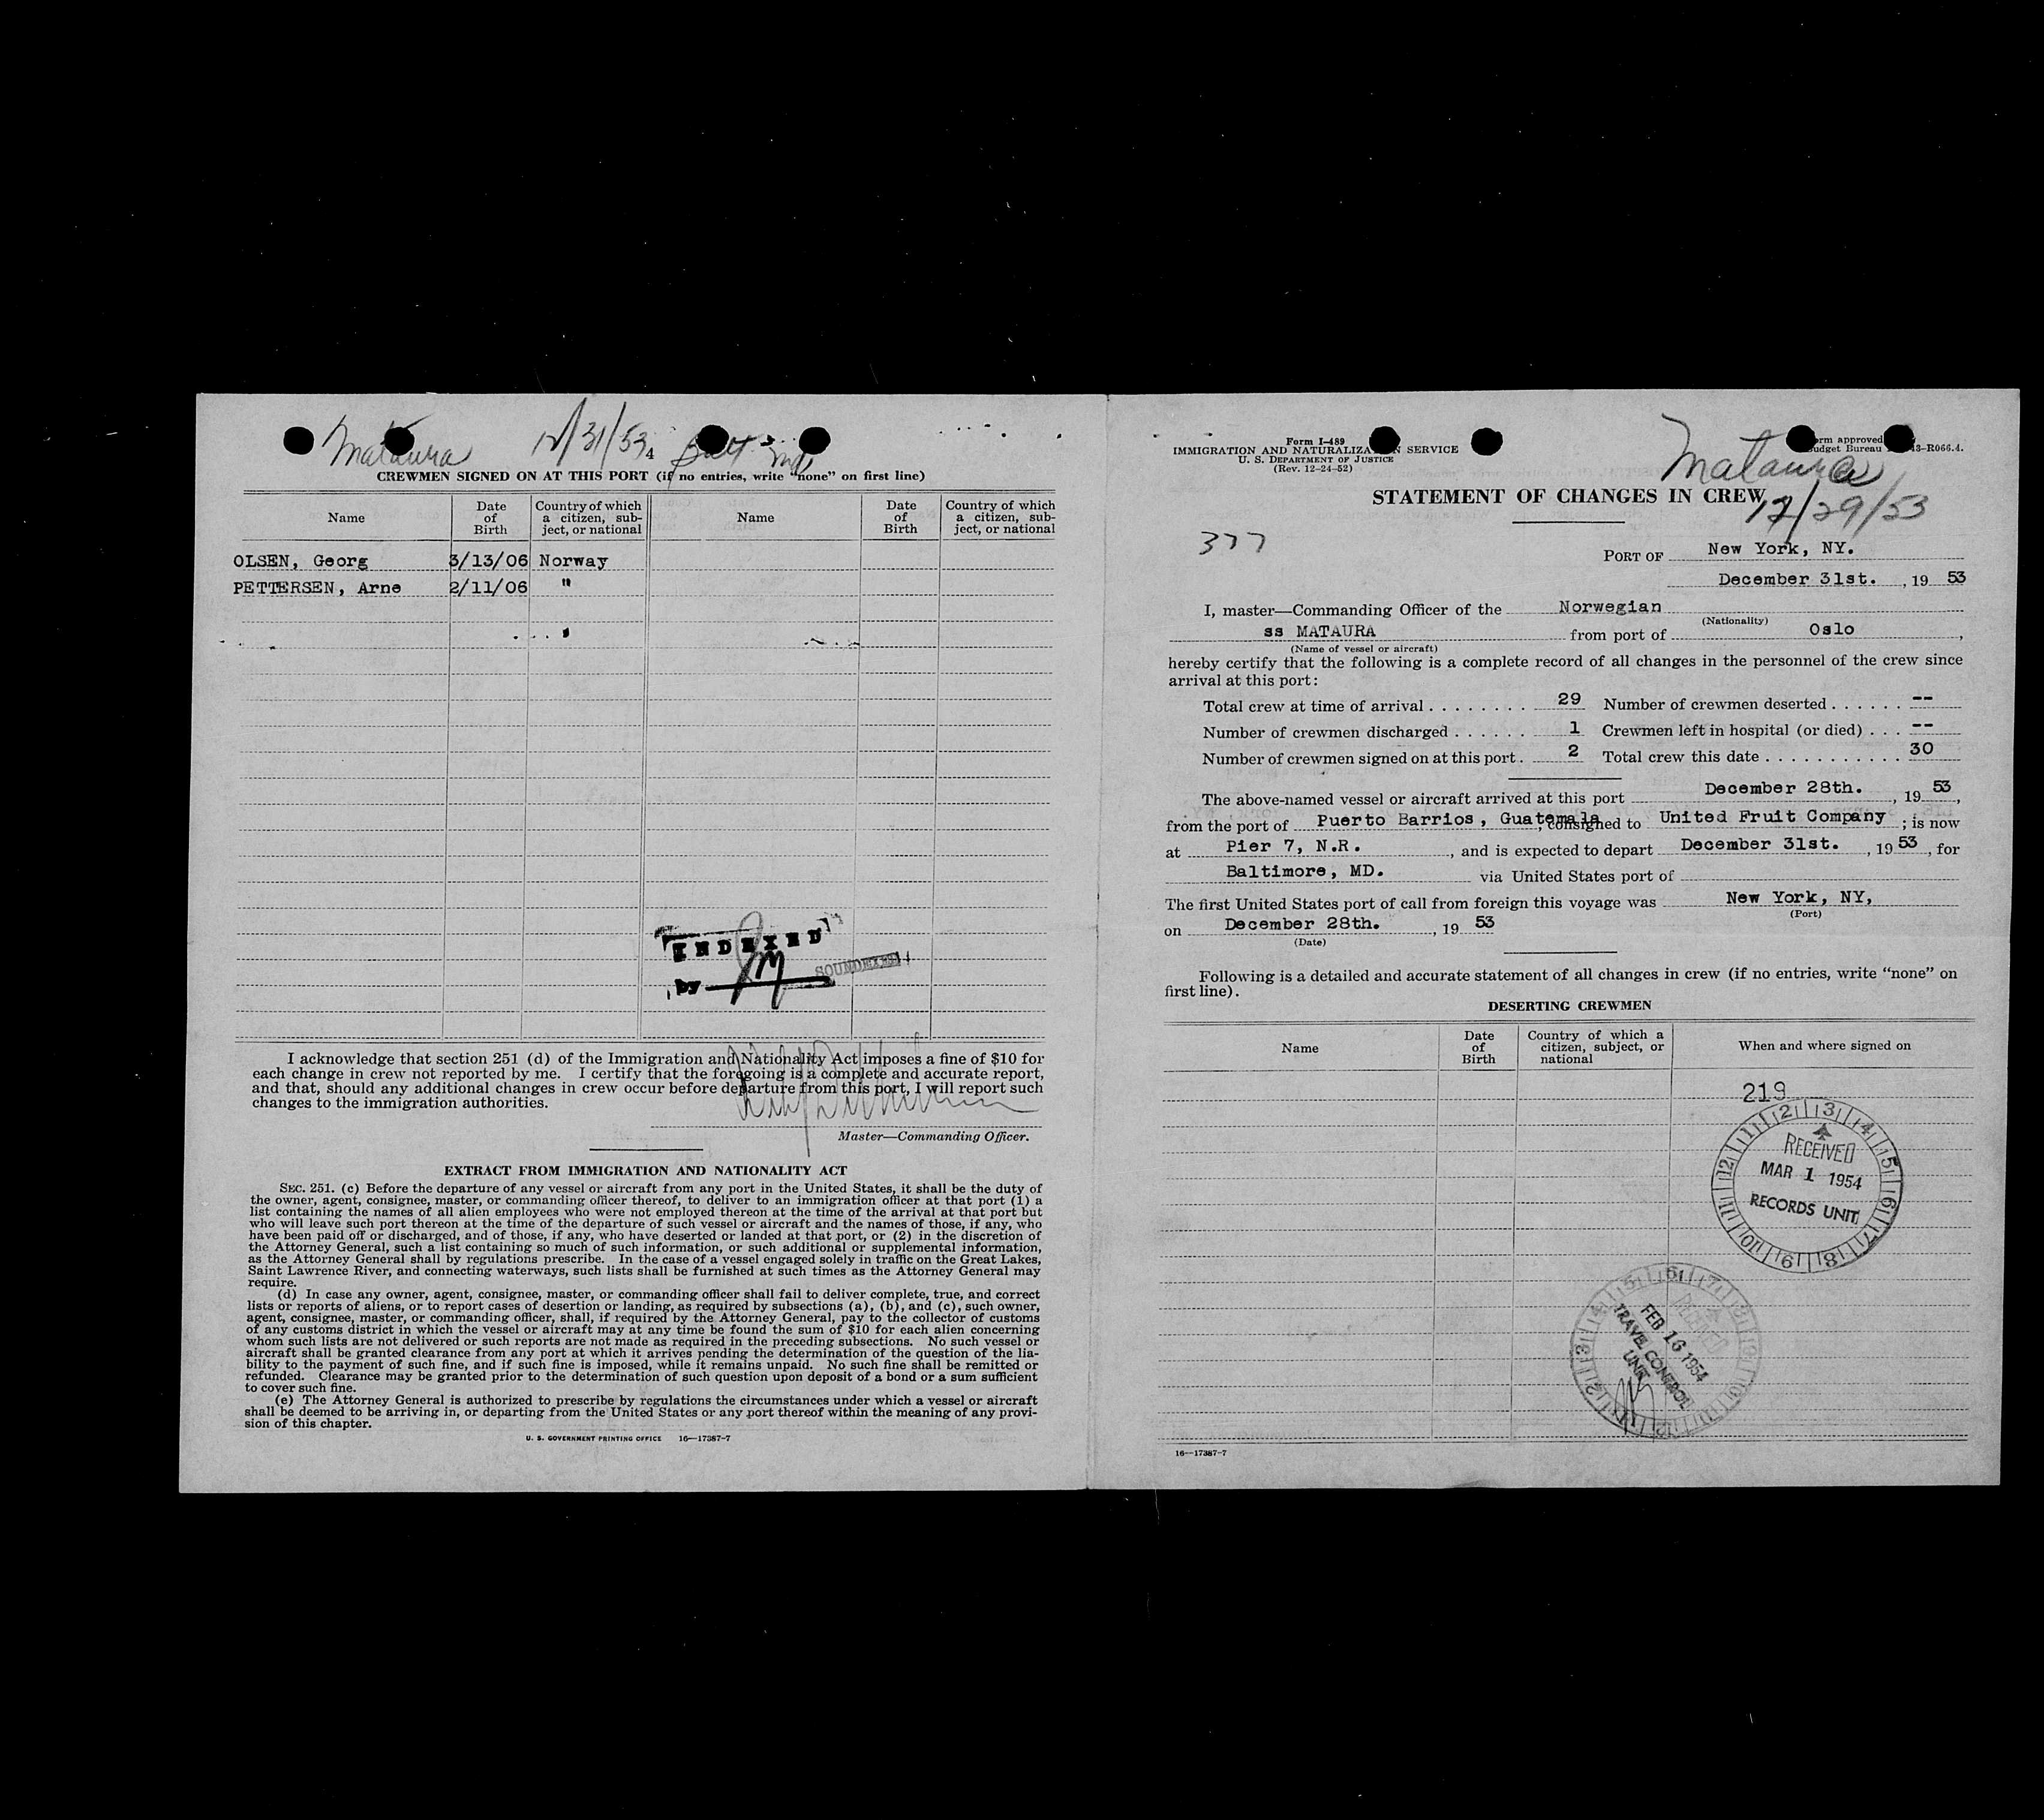 Mataura 12/31/53 Balt. Md.
CREWMEN SIGNED ON AT THIS PORT (if no entries, write "none" on first line)
Name
Date of Birth
Country of which a citizen, subject, or national
Name
Date of Birth
Country of which a citizen, subject, or national
OLSEN, Georg 3/13/06 Norway
PETTERSEN, Arne 2/11/06 "
INDEXED
by
SOUNDEXED
I acknowledge that section 251 (d) of the Immigration and Nationality Act imposes a fine of $10 for
each change in crew not reported by me. I certify that the foregoing is a complete and accurate report,
and that, should any additional changes in crew occur before departure from this port, I will report such
changes to the immigration authorities.
Master—Commanding Officer.
EXTRACT FROM IMMIGRATION AND NATIONALITY ACT
SEC. 251. (c) Before the departure of any vessel or aircraft from any port in the United States, it shall be the duty of
the owner, agent, consignee, master, or commanding officer thereof, to deliver to an immigration officer at that port (1) a
list containing the names of all alien employees who were not employed thereon at the time of the arrival at that port but
who will leave such port thereon at the time of the departure of such vessel or aircraft and the names of those, if any, who
have been paid off or discharged, and of those, if any, who have deserted or landed at that port, or (2) in the discretion of
the Attorney General, such a list containing so much of such information, or such additional or supplemental information,
as the Attorney General shall by regulations prescribe. In the case of a vessel engaged solely in traffic on the Great Lakes,
Saint Lawrence River, and connecting waterways, such lists shall be furnished at such times as the Attorney General may
require.
(d) In case any owner, agent, consignee, master, or commanding officer shall fail to deliver complete, true, and correct
lists or reports of aliens, or to report cases of desertion or landing, as required by subsections (a), (b), and (c), such owner,
agent, consignee, master, or commanding officer, shall, if required by the Attorney General, pay to the collector of customs
of any customs district in which the vessel or aircraft may at any time be found the sum of $10 for each alien concerning
whom such lists are not delivered or such reports are not made as required in the preceding subsections. No such vessel or
aircraft shall be granted clearance from any port at which it arrives pending the determination of the question of the lia-
bility to the payment of such fine, and if such fine is imposed, while it remains unpaid. No such fine shall be remitted or
refunded. Clearance may be granted prior to the determination of such question upon deposit of a bond or a sum sufficient
to cover such fine.
(e) The Attorney General is authorized to prescribe by regulations the circumstances under which a vessel or aircraft
shall be deemed to be arriving in, or departing from the United States or any port thereof within the meaning of any provi-
sion of this chapter.
U. S. GOVERNMENT PRINTING OFFICE 16—17387-7
Form I-489
IMMIGRATION AND NATURALIZATION SERVICE
U. S. DEPARTMENT OF JUSTICE
(Rev. 12-24-52)
Form approved
Budget Bureau 43-R066.4.
Mataura
12/29/53
STATEMENT OF CHANGES IN CREW
377
PORT OF New York, NY.
December 31st., 1953
I, master—Commanding Officer of the Norwegian
(Nationality)
ss MATAURA from port of Oslo,
(Name of vessel or aircraft)
hereby certify that the following is a complete record of all changes in the personnel of the crew since
arrival at this port:
Total crew at time of arrival . . . . . . . . 29 Number of crewmen deserted . . . . . . --
Number of crewmen discharged . . . . . . 1 Crewmen left in hospital (or died) . . . --
Number of crewmen signed on at this port . 2 Total crew this date . . . . . . . . . . . 30
The above-named vessel or aircraft arrived at this port December 28th., 1953,
from the port of Puerto Barrios, Guatemala, consigned to United Fruit Company; is now
at Pier 7, N.R., and is expected to depart December 31st., 1953, for
Baltimore, MD. via United States port of
The first United States port of call from foreign this voyage was New York, NY,
(Port)
on December 28th., 1953
(Date)
Following is a detailed and accurate statement of all changes in crew (if no entries, write "none" on
first line).
DESERTING CREWMEN
Name
Date of Birth
Country of which a citizen, subject, or national
When and where signed on
219
RECEIVED
MAR 1 1954
RECORDS UNIT
RECEIVED
FEB 16 1954
TRAVEL CONTROL
UNIT
16—17387-7